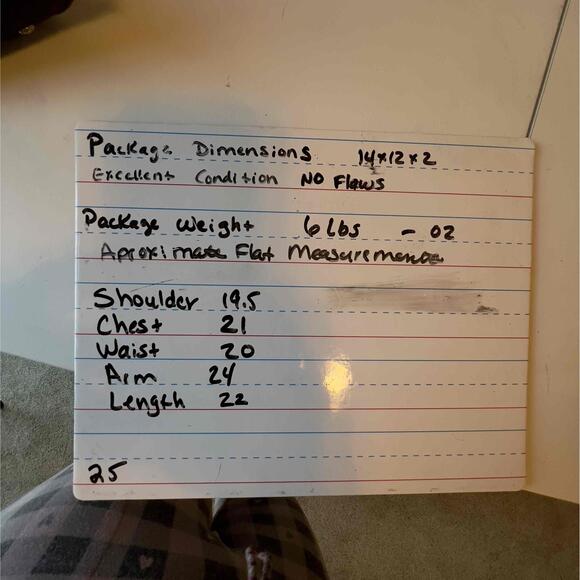 Package Dimensions 14x12x2
Excellent Condition No Flaws
Package Weight 6 lbs - oz
Aproximate Flat Measurements
Shoulder 19.5
Chest 21
Waist 20
Arm 24
Length 22
25